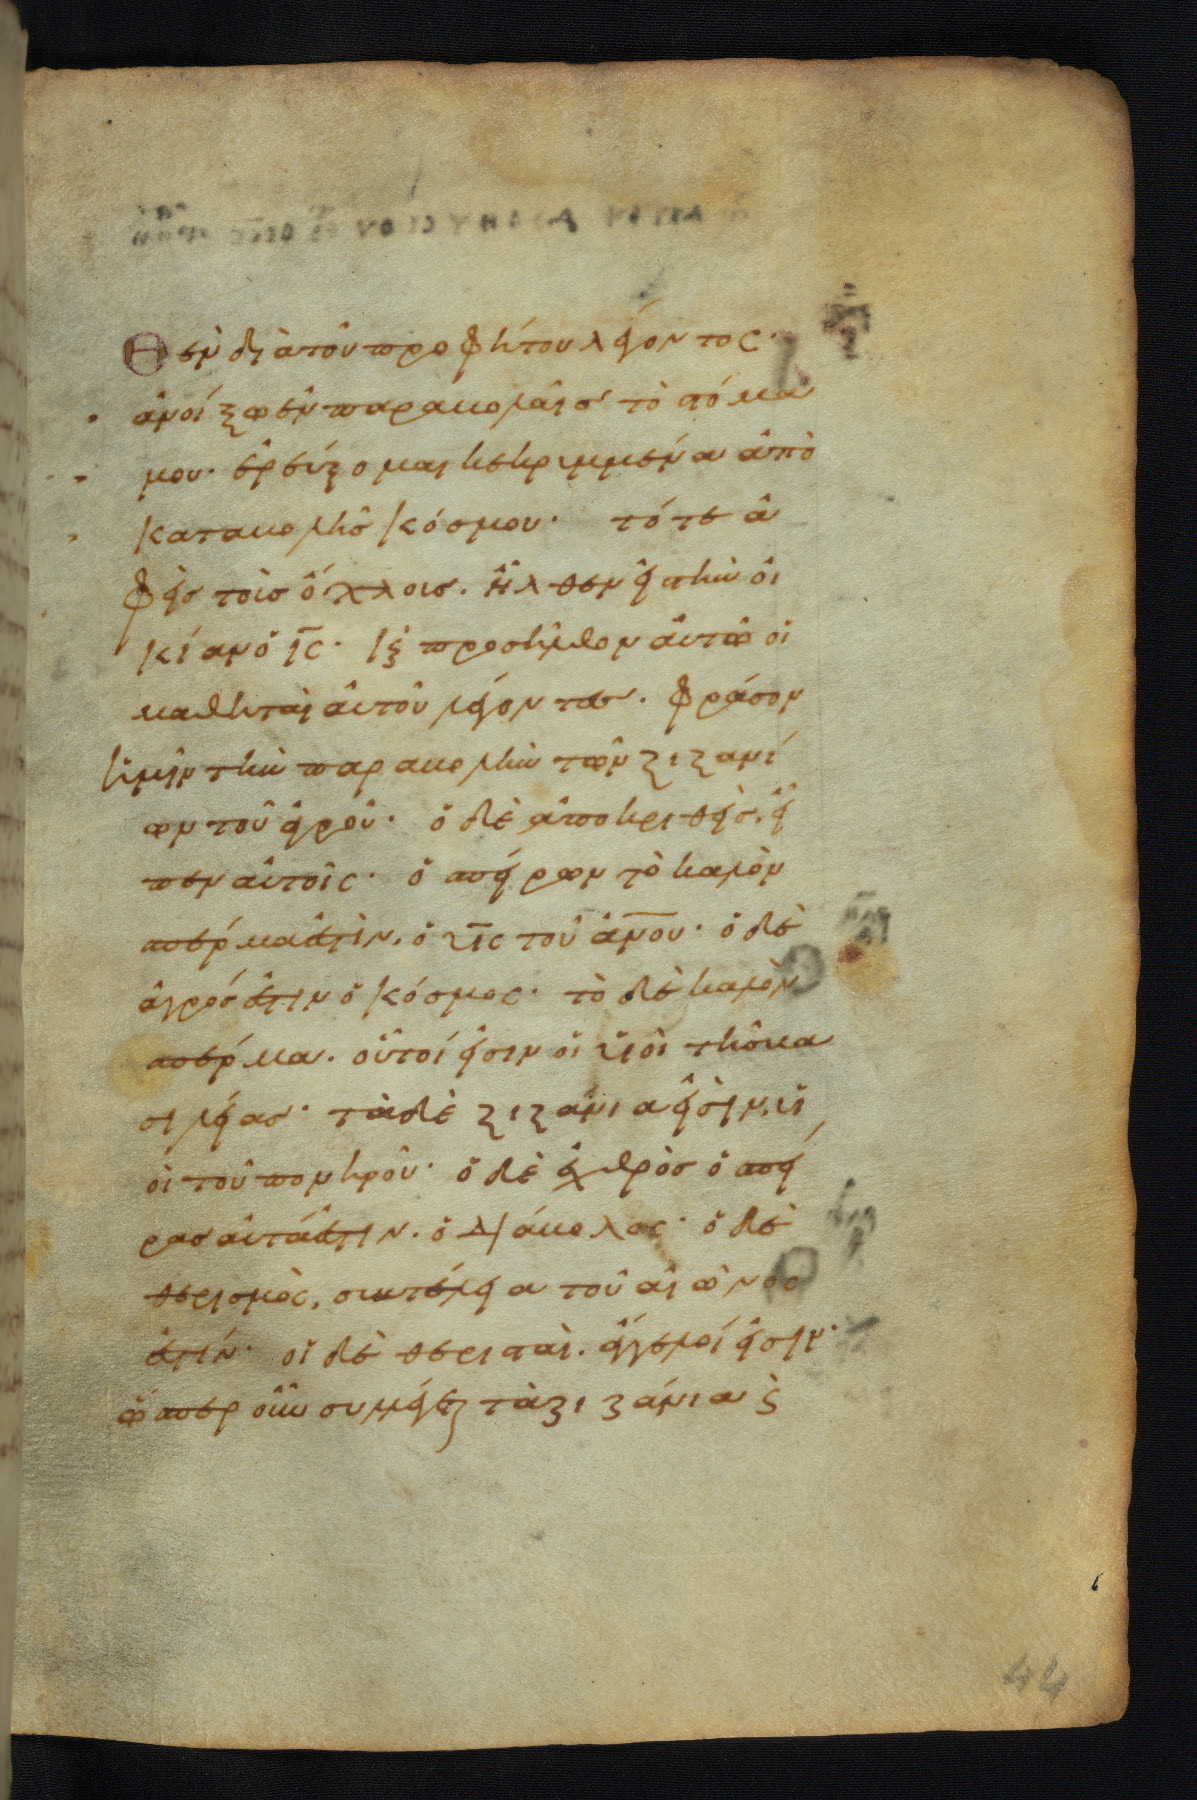 Θὲν διὰ τοῦ προφήτου λέγοντος·
ἀνοίξω ἐν παραβολαῖς τὸ στόμα
μου· ἐρεύξομαι κεκρυμμένα ἀπὸ
καταβολῆς κόσμου· τότε ἀ
φεὶς τοὺς ὄχλους. ἦλθεν εἰς τὴν οἰ
κίαν ὁ ι̅ς̅· κ̀ προσῆλθον αὐτῶ οἱ
μαθηταὶ αὐτοῦ λέγοντες. φράσον
ἡμῖν τὴν παραβολὴν τῶν ζιζανί
ων τοῦ ἀγροῦ· ὁ δὲ ἀποκριθεὶς. εἶ
πεν αὐτοῖς· ὁ σπείρων τὸ καλὸν
σπέρμα ἐστὶν. ὁ υ̅ς̅ τοῦ α̅ν̅ο̅υ̅· ὁ δὲ
ἀγρός ἐστιν ὁ κόσμος· τὸ δὲ καλὸν
σπέρμα. οὗτοί εἰσιν οἱ υἱοὶ τῆς βα
σιλείας· τὰ δὲ ζιζάνια εἰσὶν. υἱ
οὶ τοῦ πονηροῦ· ὁ δὲ ἐχθρὸς ὁ σπεί
ρας αὐτά ἐστιν. ὁ διάβολος· ὁ δὲ
θερισμὸς, συντέλεια τοῦ αἰῶνος
ἐστίν· οἱ δὲ θερισταὶ. ἄγγελοί εἰσιν·
ὥσπερ οὖν συλλέγεται τὰ ζιζάνια κ̀
44